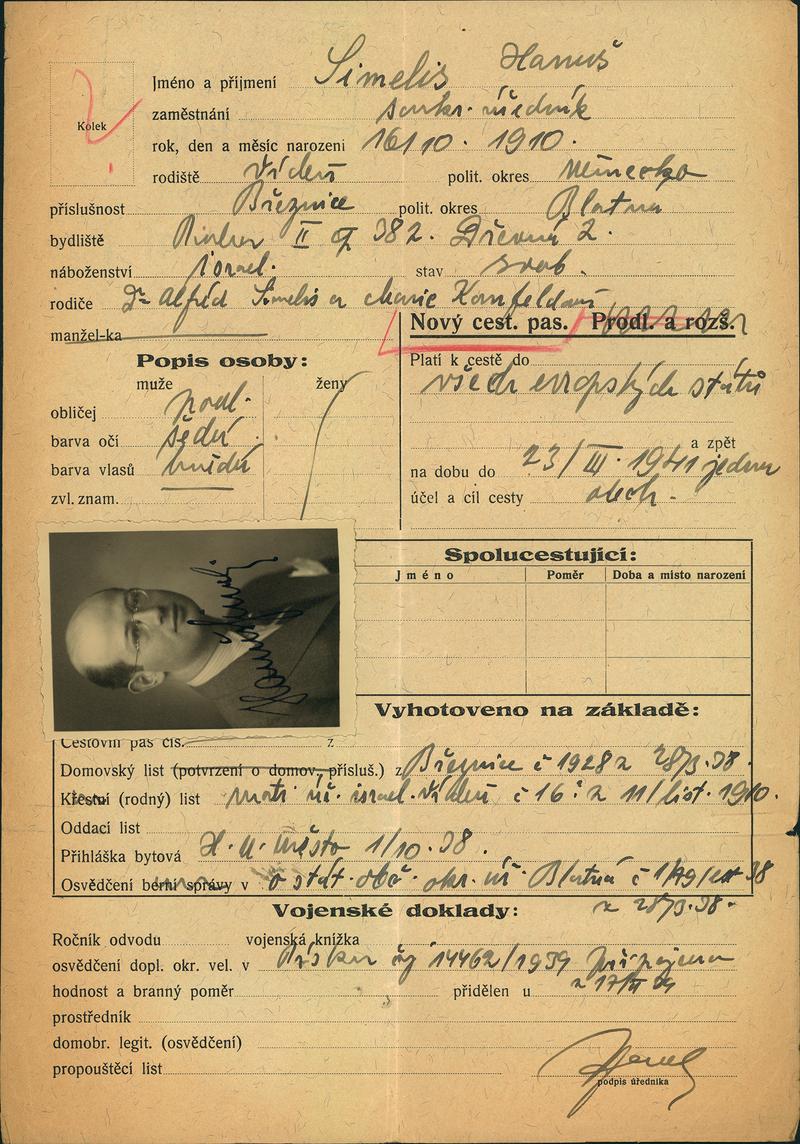 Kolek
Jméno a příjmení Simelis Hanuš
zaměstnání soukr. úředník
rok, den a měsíc narození 16/10. 1910.
rodiště Vídeň polit. okres Německo
příslušnost Březnice polit. okres Blatná
bydliště II 382. Dřevná 2.
náboženství israel. stav svob.
rodiče Dr Alfréd Simelis a Marie Kornfeldová
manžel-ka
Nový cest. pas. Prodl. a rozš.
Popis osoby:
muže ženy
obličej podl.
barva očí šedá
barva vlasů hnědá
zvl. znam.
Platí k cestě do
všech evropských států
a zpět
na dobu do 23/III. 1941
účel a cíl cesty obch.
Hanuš Simelis
Spolucestující:
Jméno Poměr Doba a místo narození
Vyhotoveno na základě:
Cestovní pas čís. z
Domovský list (potvrzení o domov, přísluš.) z Březnice č 1928 z 28/9.38.
Křestní (rodný) list matr. úř. israel. Vídeň č 16: z 11/list. 1910.
Oddací list
Přihláška bytová H. u. město 1/10.38.
Osvědčení berní správy v o stát. obč. okr. úř. Blatná č
z 28/9.38.
Vojenské doklady:
Ročník odvodu vojenská knížka
osvědčení dopl. okr. vel. v Písku čj 14462/1939
hodnost a branný poměr přidělen u
prostředník
domobr. legit. (osvědčení)
propouštěcí list
podpis úředníka